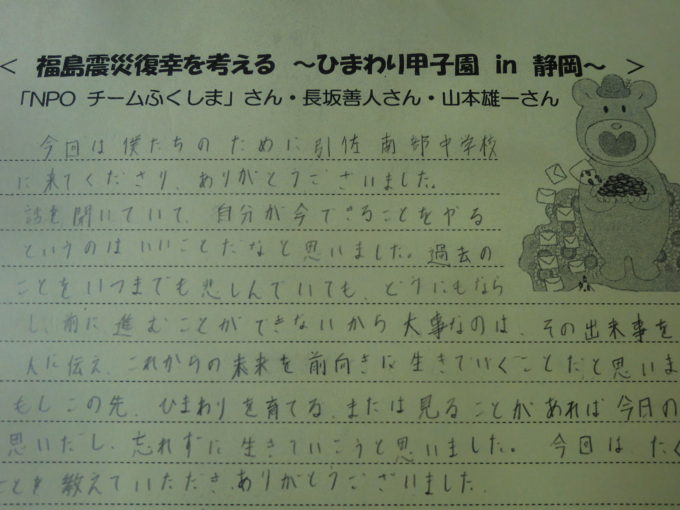 < 福島震災復幸を考える ～ひまわり甲子園 in 静岡～ >
「NPO チームふくしま」さん・長坂善人さん・山本雄一さん
今回は僕たちのために引佐南部中学校
に来てくださり、ありがとうございました。
話を聞いていて、自分が今できることをやる
というのはいいことだなと思いました。過去の
ことをいつまでも悲しんでいても、どうにもなら
し、前に進むことができないから大事なのは、その出来事を
人に伝え、これからの未来を前向きに生きていくことだと思いま
もしこの先、ひまわりを育てる、または見ることがあれば今日の
思いだし、忘れずに生きていこうと思いました。 今回は、たく
ことを教えていただき、ありがとうございました。